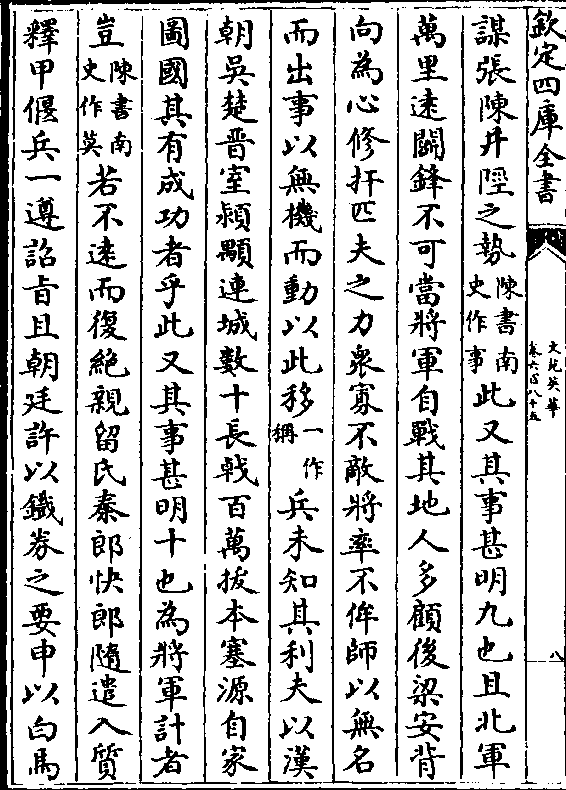 欽定四庫全書
文苑英華
卷六百八十五
八
謀張陳井陘之勢陳書南史作事此又其事甚明九也且北軍
萬里遠鬬鋒不可當將軍自戰其地人多顧後梁安背
向為心修扞匹夫之力衆寡不敵將率不侔師以無名
而出事以無機而動以此移一作稱兵未知其利夫以漢
朝吳楚晉室潁顒連城數十長戟百萬拔本塞源自家
圖國其有成功者乎此又其事甚明十也為將軍計者
豈陳書南史作莫若不遠而復絶親留氏秦郎快郎隨遣入質
釋甲偃兵一遵詔旨且朝廷許以鐵券之要申以白馬